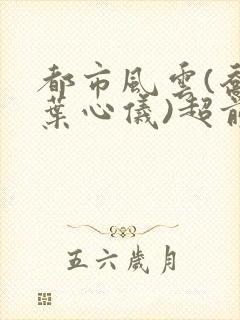 都市風雲(喬
葉心儀)超前
五六歲月